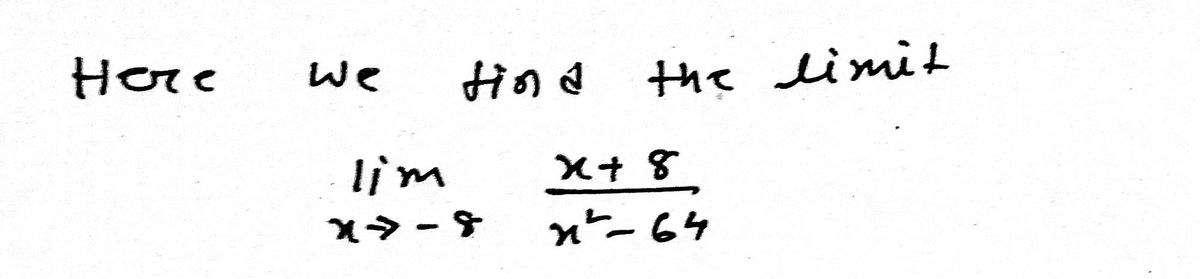 Here we find the limit
lim x+8
x→-8 x²-64